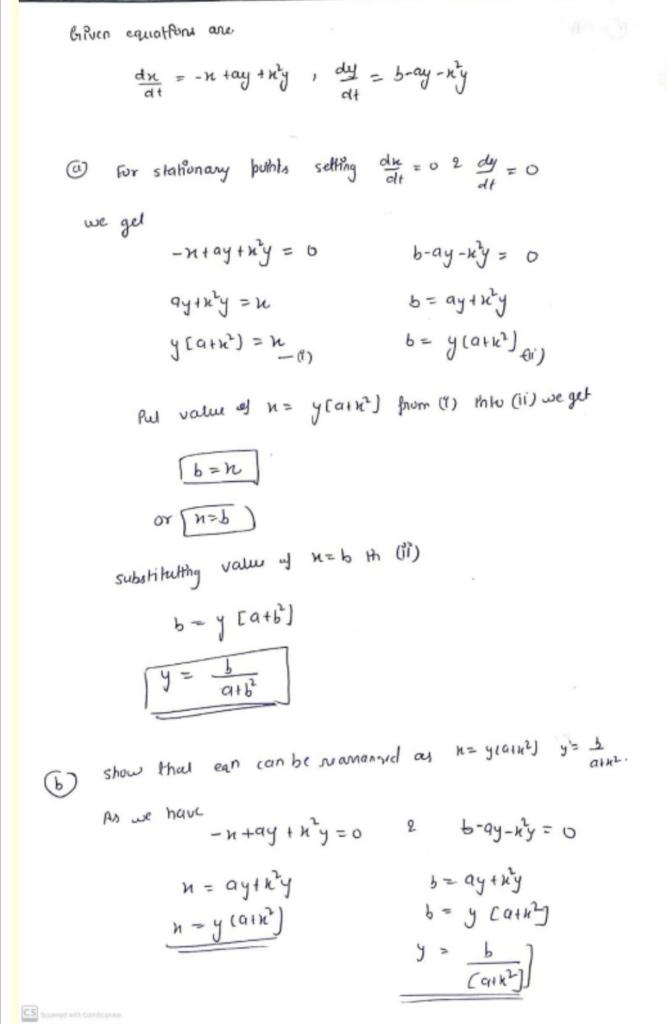 Given equations are
dx/dt = -x + ay + x²y , dy/dt = b-ay-x²y
(a) For stationary points setting dx/dt = 0 & dy/dt = 0
we get
-x+ay+x²y = 0 b-ay-x²y = 0
ay+x²y = x b = ay+x²y
y[a+x²] = x —(i) b = y(a+x²) —(ii)
Put value of x = y[a+x²] from (i) into (ii) we get
b = x
or x=b
substituting value of x=b in (ii)
b = y [a+b²]
y = b/a+b²
(b) show that eqn can be rearranged as x = y(a+x²) y = b/a+x².
As we have
-x+ay+x²y=0 & b-ay-x²y = 0
x = ay+x²y b = ay+x²y
x = y(a+x²) b = y [a+x²]
y = b/[a+x²]
CS Scanned with CamScanner